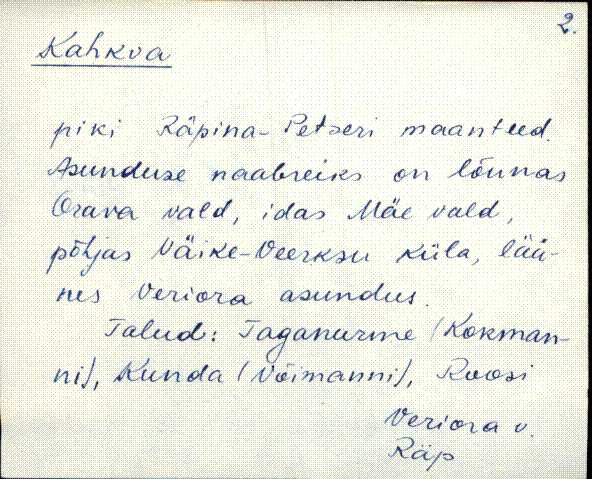 2.
Kahkva
piki Räpina-Petseri maanteed.
Asunduse naabreiks on lõunas
Orava vald, idas Mäe vald,
põhjas Väike-Veerksu küla, lää-
nes Veriora asundus.
Talud: Taganurme (Kokman-
ni), Kunda (Võimanni), Roosi
Veriora v.
Räp